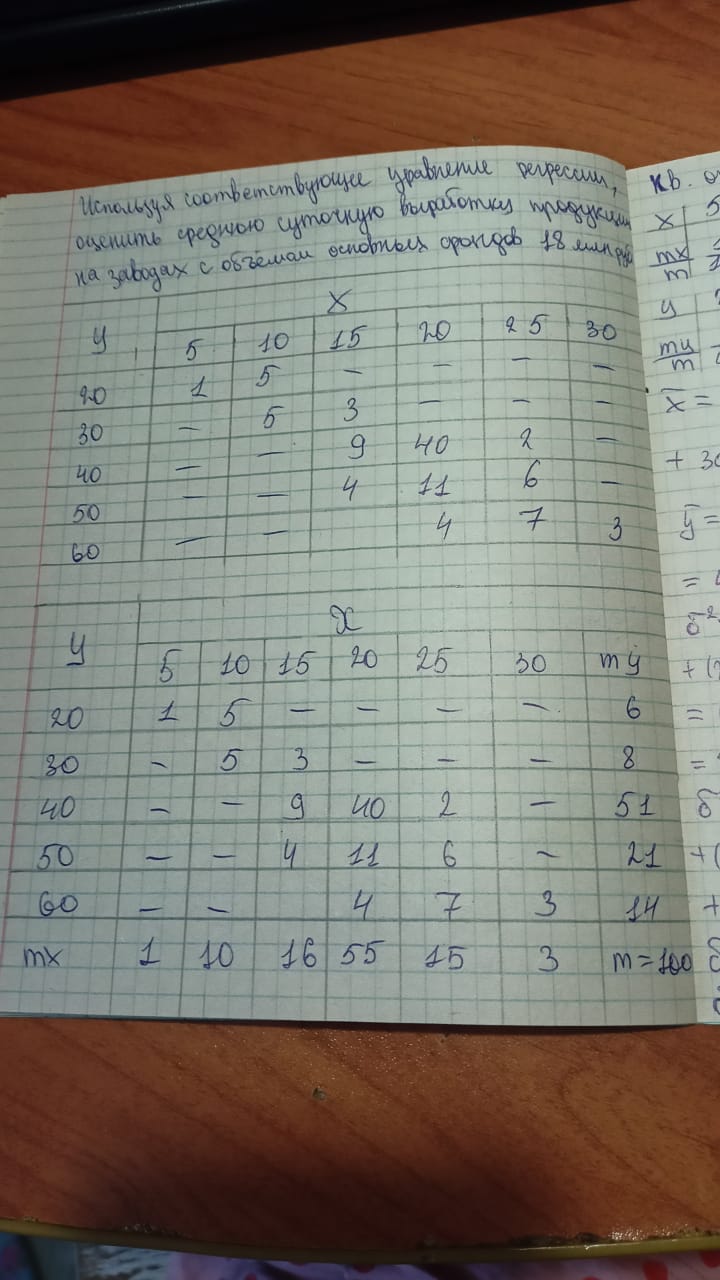 Используя соответствующее уравнение регрессии,
оценить среднюю суточную выработку продукции
на заводах с объёмом основных фондов 18 млн руб
y X
5 10 15 20 25 30
20 1 5 — — — —
30 — 5 3 — — —
40 — — 9 40 2 —
50 — — 4 11 6 —
60 — — 4 7 3
y X
5 10 15 20 25 30 my
20 1 5 — — — — 6
30 — 5 3 — — — 8
40 — — 9 40 2 — 51
50 — — 4 11 6 — 21
60 — — 4 7 3 14
mx 1 10 16 55 15 3 m=100
кв.
x 5
mx/m
y
my/m
x̄ =
+ 30
ȳ =
=
σ²
+ (
=
=
+ (
+